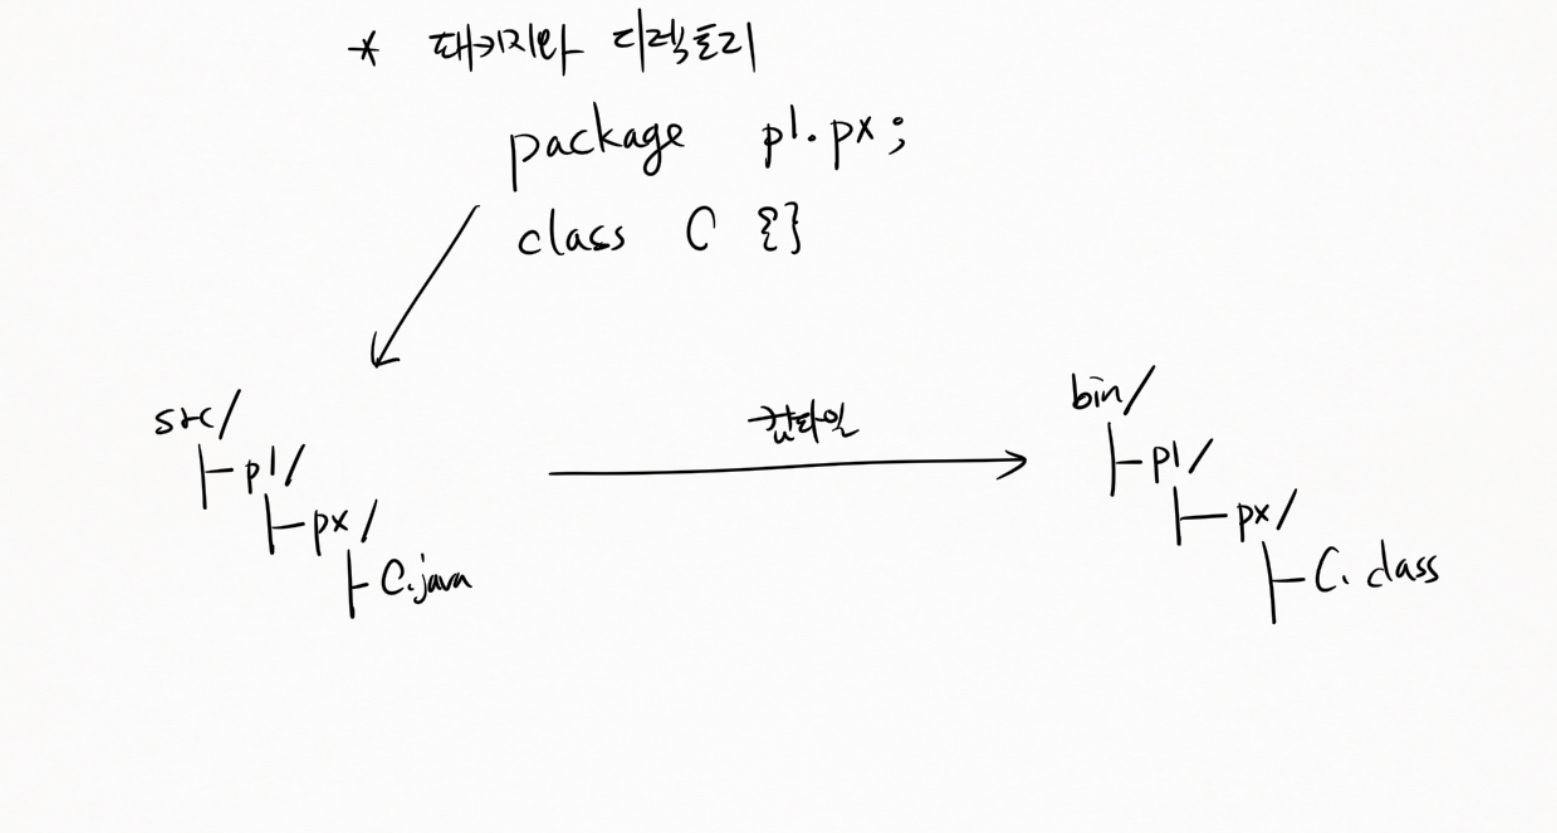 * 패키지와 디렉토리
package p1.px;
class C {}
src/
├ p1/
├ px/
├ C.java
컴파일
bin/
├ p1/
├ px/
├ C.class